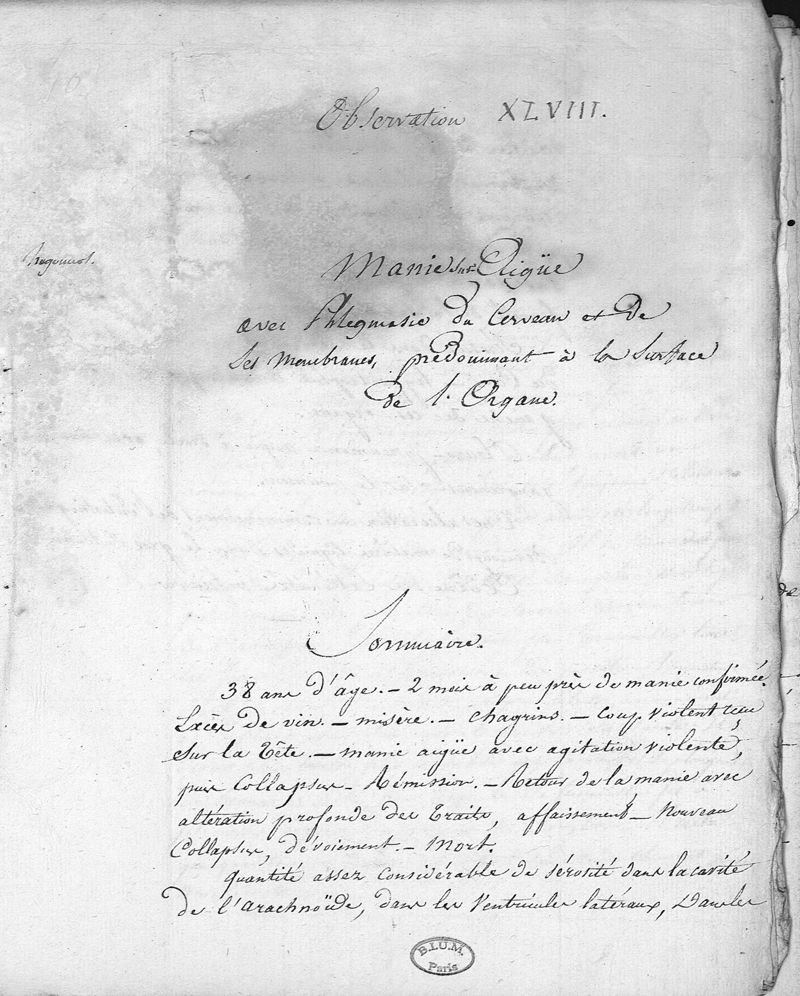 Observation XLVIII.
Manie sur-Aigüe
avec Phlegmasie du Cerveau et de
Ses Membranes, prédominant à la Surface
de l'Organe.
Sommaire.
38 ans d'âge. – 2 mois à peu près de manie confirmée.
Excès de vin. – misère. – Chagrins. – Coup violent reçu
Sur la tête. – manie aigüe avec agitation violente,
puis Collapsus – Rémission. – Retour de la manie avec
altération profonde des traits, affaissement – Nouveau
Collapsus, dévoiement. – Mort.
quantité assez considérable de sérosité dans la cavité
de l'arachnoïde, dans les Ventricules latéraux, Dans les
B.I.U.M.
Paris